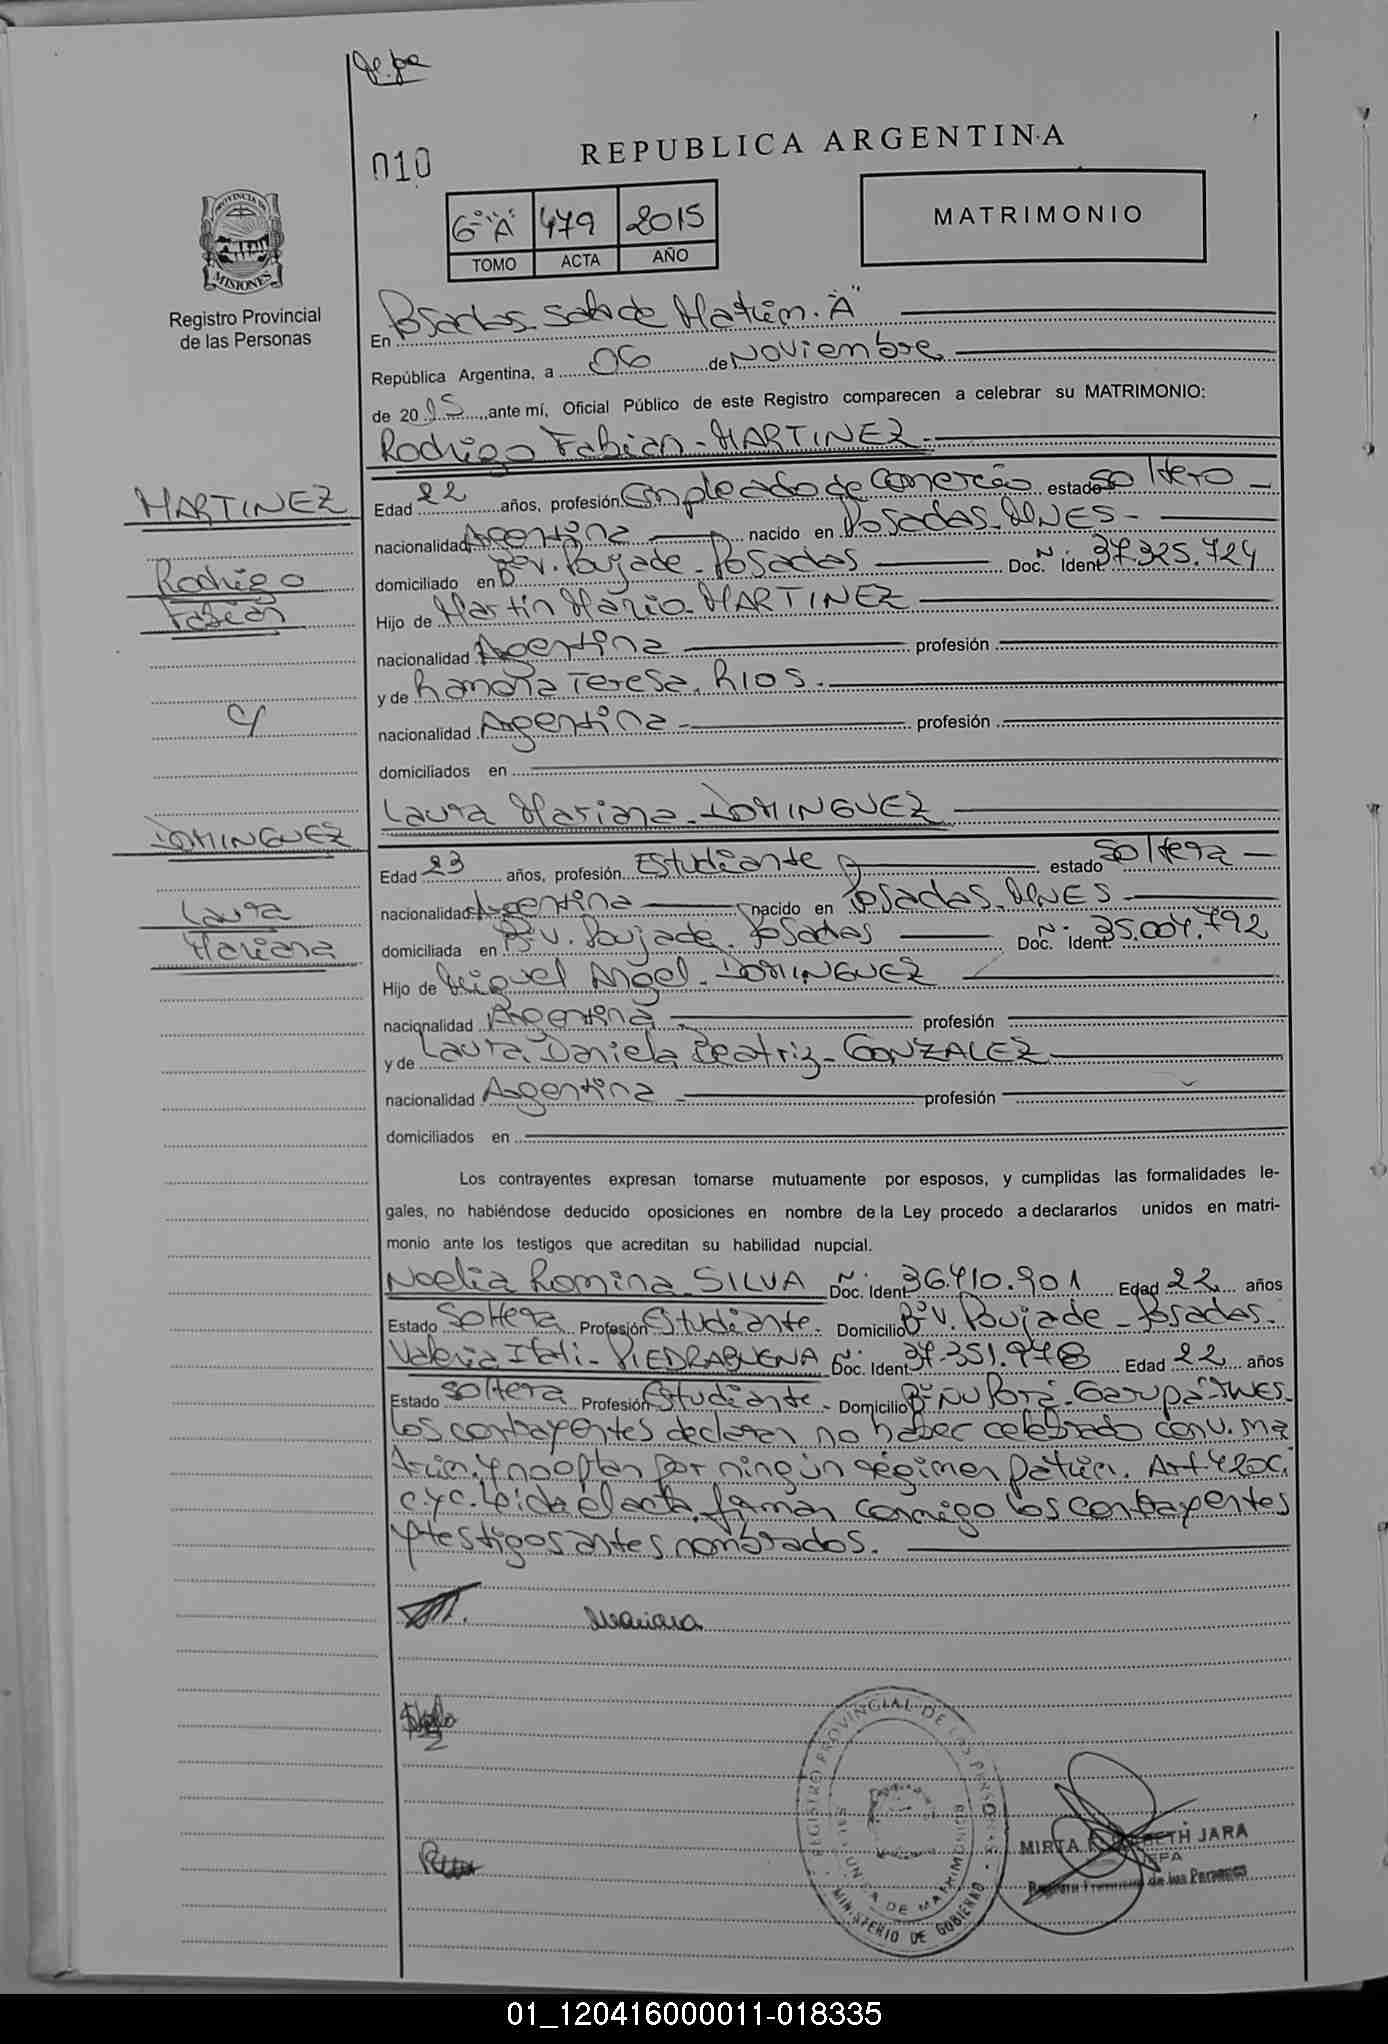 010
REPUBLICA ARGENTINA
PROVINCIA DE
MISIONES
Registro Provincial
de las Personas
6º "A" 479 2015
TOMO ACTA AÑO
MATRIMONIO
En Posadas Sala de Matrim. "A"
República Argentina, a 06 de Noviembre
de 2015, ante mí, Oficial Público de este Registro comparecen a celebrar su MATRIMONIO:
Rodrigo Fabian - MARTINEZ
MARTINEZ
Rodrigo
Fabian
c/
DOMINGUEZ
Laura
Mariana
Edad 22 años, profesión Empleado de Comercio estado Soltero
nacionalidad Argentina nacido en Posadas. MNES
domiciliado en Bº V. Poujade - Posadas Doc. Ident Nº 37.325.724
Hijo de Martín Mario. MARTINEZ
nacionalidad Argentina profesión
y de Ramona Teresa. RIOS.
nacionalidad Argentina profesión
domiciliados en
Laura Mariana - DOMINGUEZ
Edad 23 años, profesión Estudiante estado Soltera
nacionalidad Argentina nacido en Posadas. MNES
domiciliada en Bº V. Poujade. Posadas Doc. Ident Nº 35.004.792
Hijo de Miguel Angel - DOMINGUEZ
nacionalidad Argentina profesión
y de Laura Daniela Beatriz - GONZALEZ
nacionalidad Argentina profesión
domiciliados en
Los contrayentes expresan tomarse mutuamente por esposos, y cumplidas las formalidades le-
gales, no habiéndose deducido oposiciones en nombre de la Ley procedo a declararlos unidos en matri-
monio ante los testigos que acreditan su habilidad nupcial.
Noelia Romina - SILVA Doc. Ident Nº 36.410.901 Edad 22 años
Estado Soltera Profesión Estudiante. Domicilio Bº V. Poujade - Posadas.
Valeria Itati - PIEDRABUENA Doc. Ident Nº 37.351.978 Edad 22 años
Estado Soltera Profesión Estudiante - Domicilio Bº Ñu Porá - Garupá - MNES.
Los contrayentes declaran no haber celebrado conv. ma
trim. y no optan por ningún régimen patrim. Art. 420 C.
C. y C. Leída el acta, firman conmigo los contrayentes
y testigos antes nombrados.
Mariana
REGISTRO PROVINCIAL DE LAS PERSONAS
DE MATRIMONIO
MINISTERIO DE GOBIERNO
MIRTA JARA
JEFA
Registro Provincial de las Personas
01_120416000011-018335